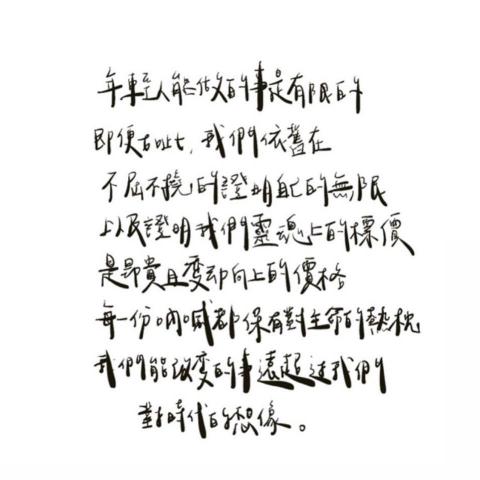 年輕人能做的事是有限的
即便如此,我們依舊在
不屈不撓的證明自己的無限
以及證明我們靈魂上的標價
是昂貴且變動向上的價格
每一份吶喊都保有對生命的熱枕
我們能改變的事遠超過我們
對時代的想像。